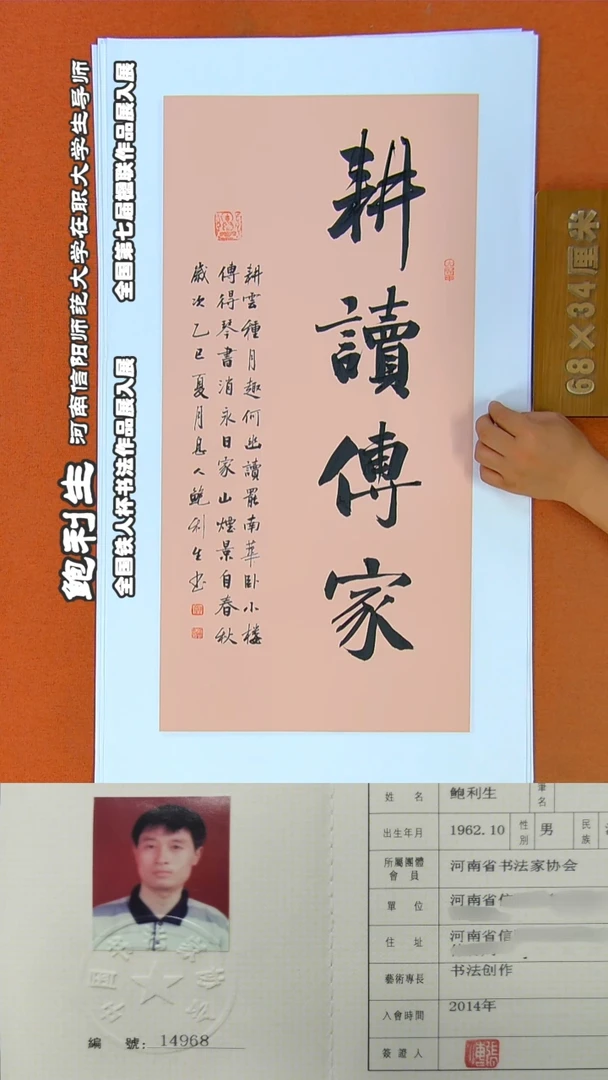 鲍利生 河南信阳师范大学在职大学生导师
全国铁人杯书法作品展入展 全国第七届楹联作品展入展
68×34厘米
耕讀傳家
耕雲種月趣何幽讀罷南華卧小樓
傳得琴書消永日家山煙景自春秋
歲次乙巳夏月人鲍利生书
姓 名 鲍利生 筆名
出生年月 1962.10 性别 男 民族
所屬團體會員 河南省书法家协会
單 位 河南省信
住 址 河南省信
藝術專長 书法创作
入會時間 2014年
簽證人
編 號: 14968